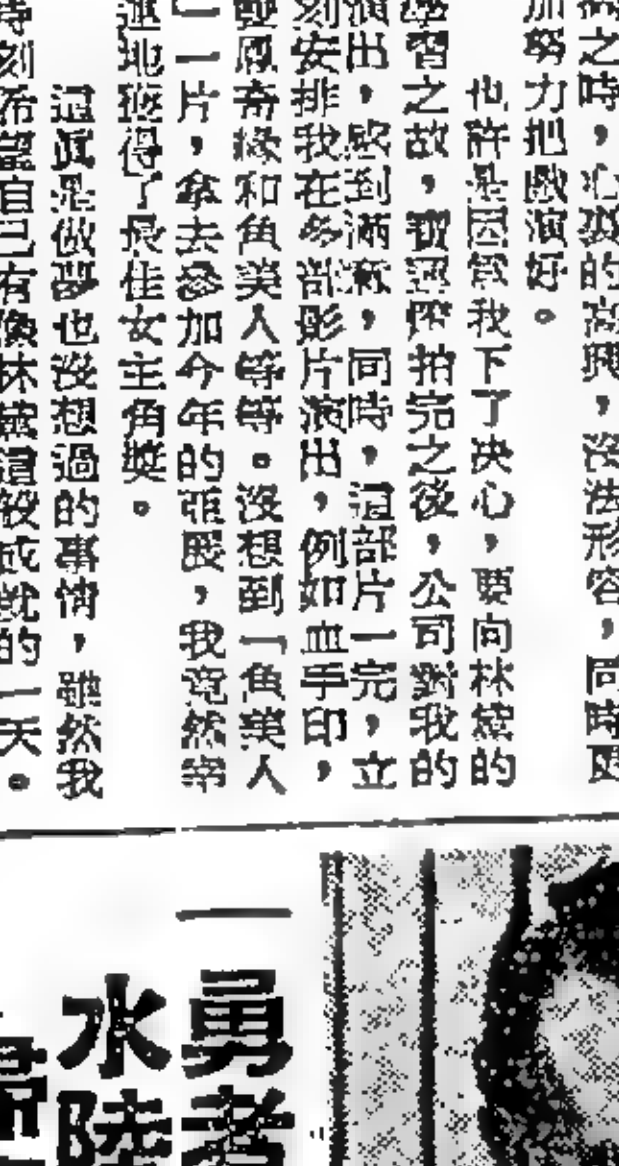 之時，心裏的高興，沒法形容，同時更
加努力把戲演好。
也許是因為我下了決心，要向林黛的
學習之故，寶蓮燈拍完之後，公司對我的
演出，感到滿意，同時，這部片一完，立
刻安排我在多部影片演出，例如血手印，
雙鳳奇緣和魚美人等等。沒想到「魚美人
」一片，拿去參加今年的亞展，我竟然幸
運地獲得了最佳女主角獎。
這眞是做夢也沒想過的事情，雖然我
時刻希望自己有像林黛這般成就的一天。
勇者
水陸